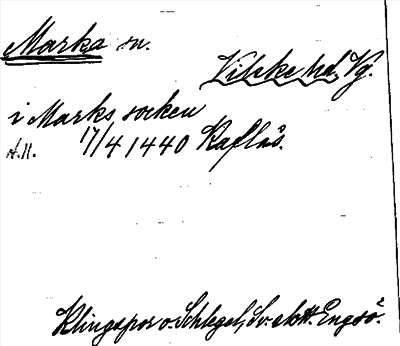 Marka sn.
Vilske hd, Vg.
i Marks socken
A.H. 17/4 1440 Kaflås.
Klingspor o. Schlegel, Sv. slott. Engsö.